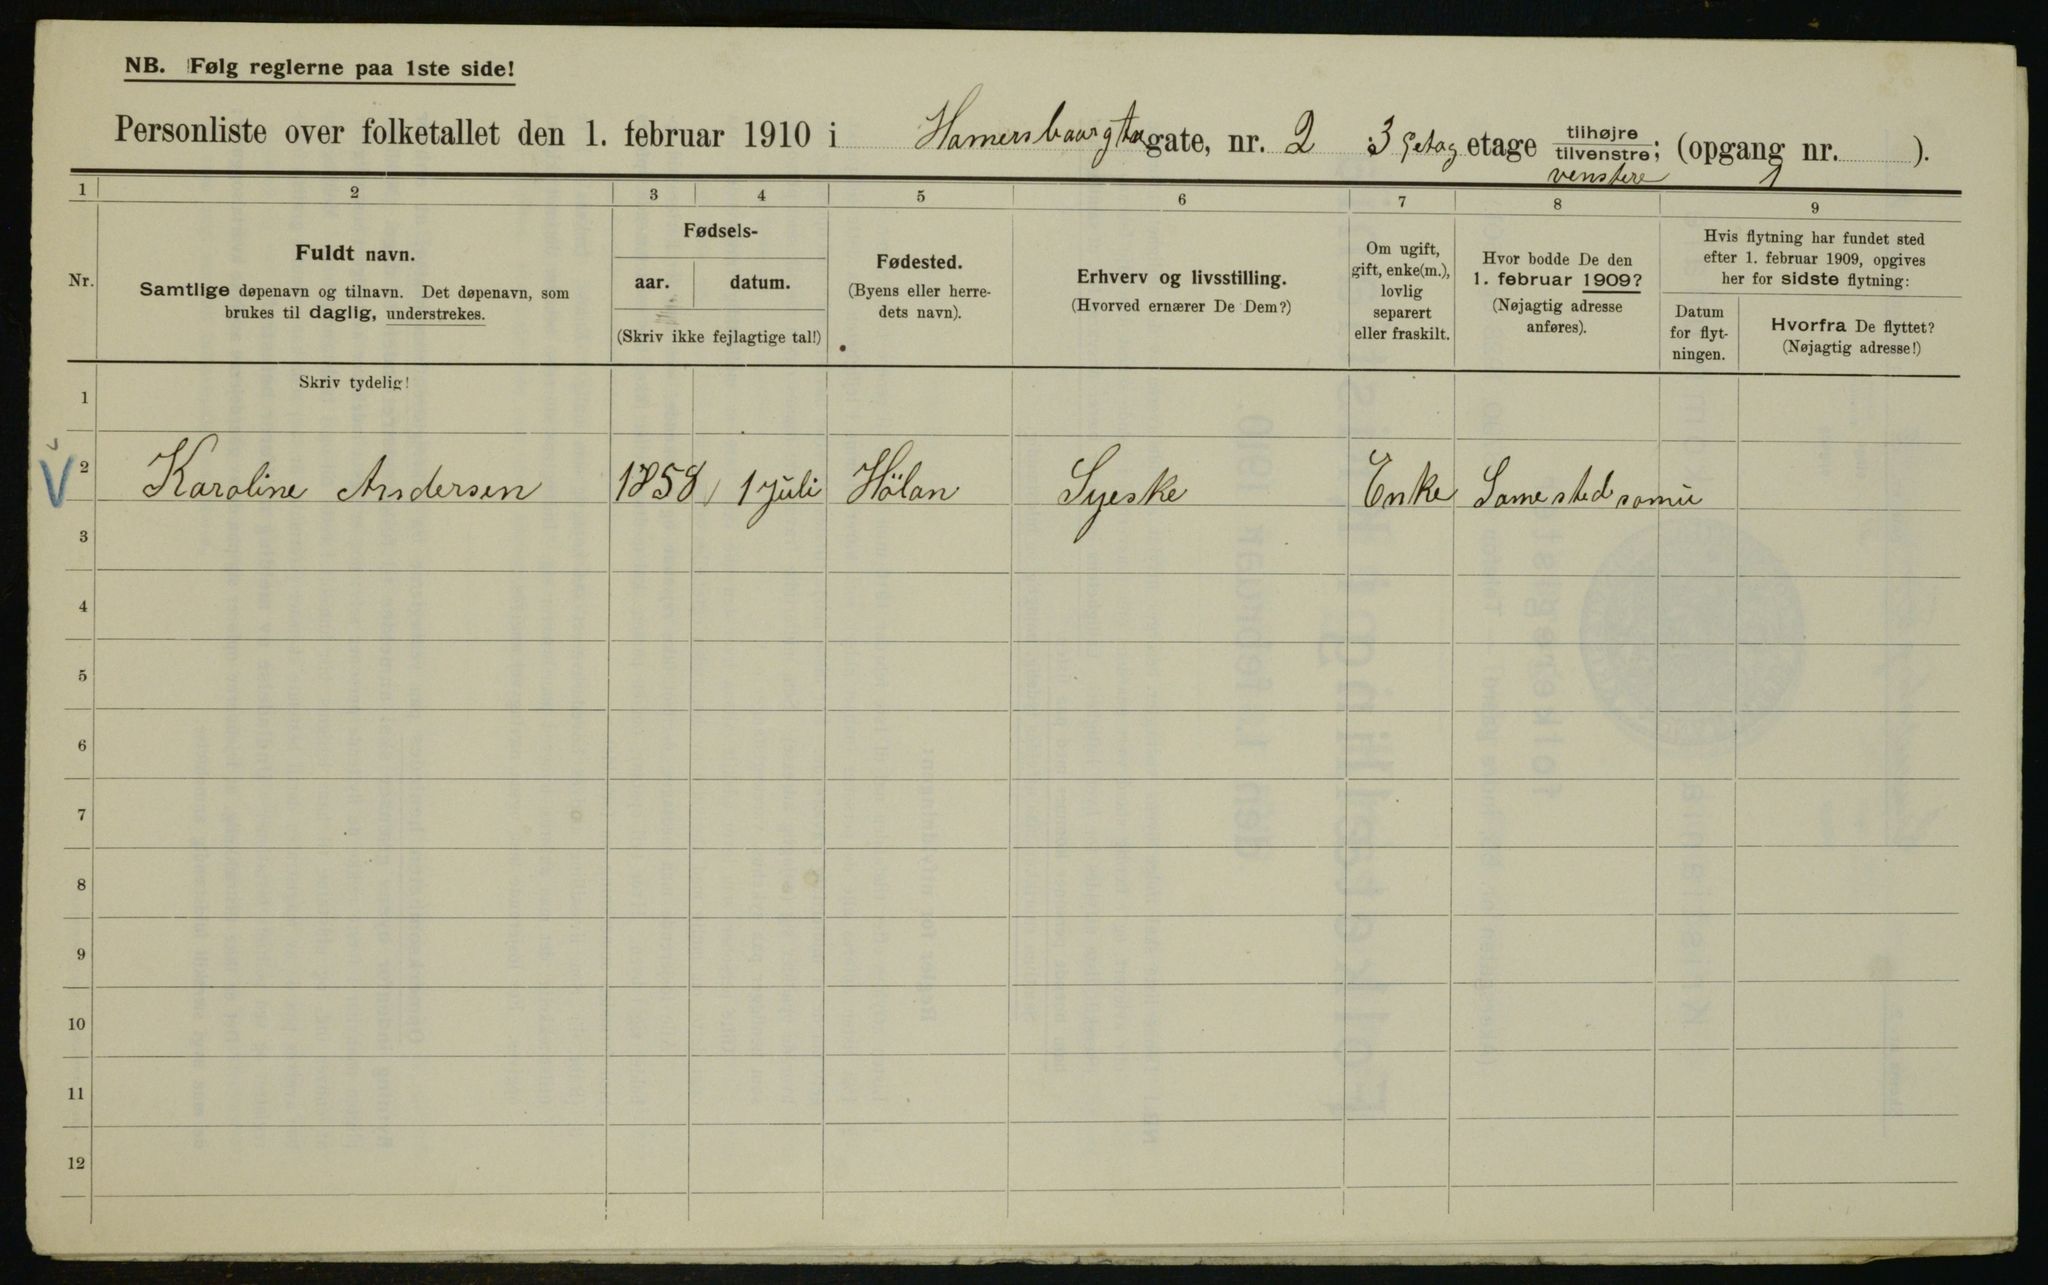 NB. Følg reglerne paa 1ste side!
Personliste over folketallet den 1. februar 1910 i Hamersbaargta gate, nr. 2 3 Getag etage tilhøjre tilvenstre; (opgang nr. ).
venstere 1
1 2 3 4 5 6 7 8 9
Nr.
Fuldt navn.
Samtlige døpenavn og tilnavn. Det døpenavn, som
brukes til daglig, understrekes.
Fødsels-
aar. datum.
(Skriv ikke fejlagtige tal!)
Fødested.
(Byens eller herre-
dets navn).
Erhverv og livsstilling.
(Hvorved ernærer De Dem?)
Om ugift,
gift, enke(m.),
lovlig
separert
eller fraskilt.
Hvor bodde De den
1. februar 1909?
(Nøjagtig adresse
anføres).
Hvis flytning har fundet sted
efter 1. februar 1909, opgives
her for sidste flytning:
Datum
for flyt-
ningen.
Hvorfra De flyttet?
(Nøjagtig adresse!)
Skriv tydelig!
1
V 2 Karoline Andersen 1858 1 juli Hölan Syeske Enke Samested
3
4
5
6
7
8
9
10
11
12